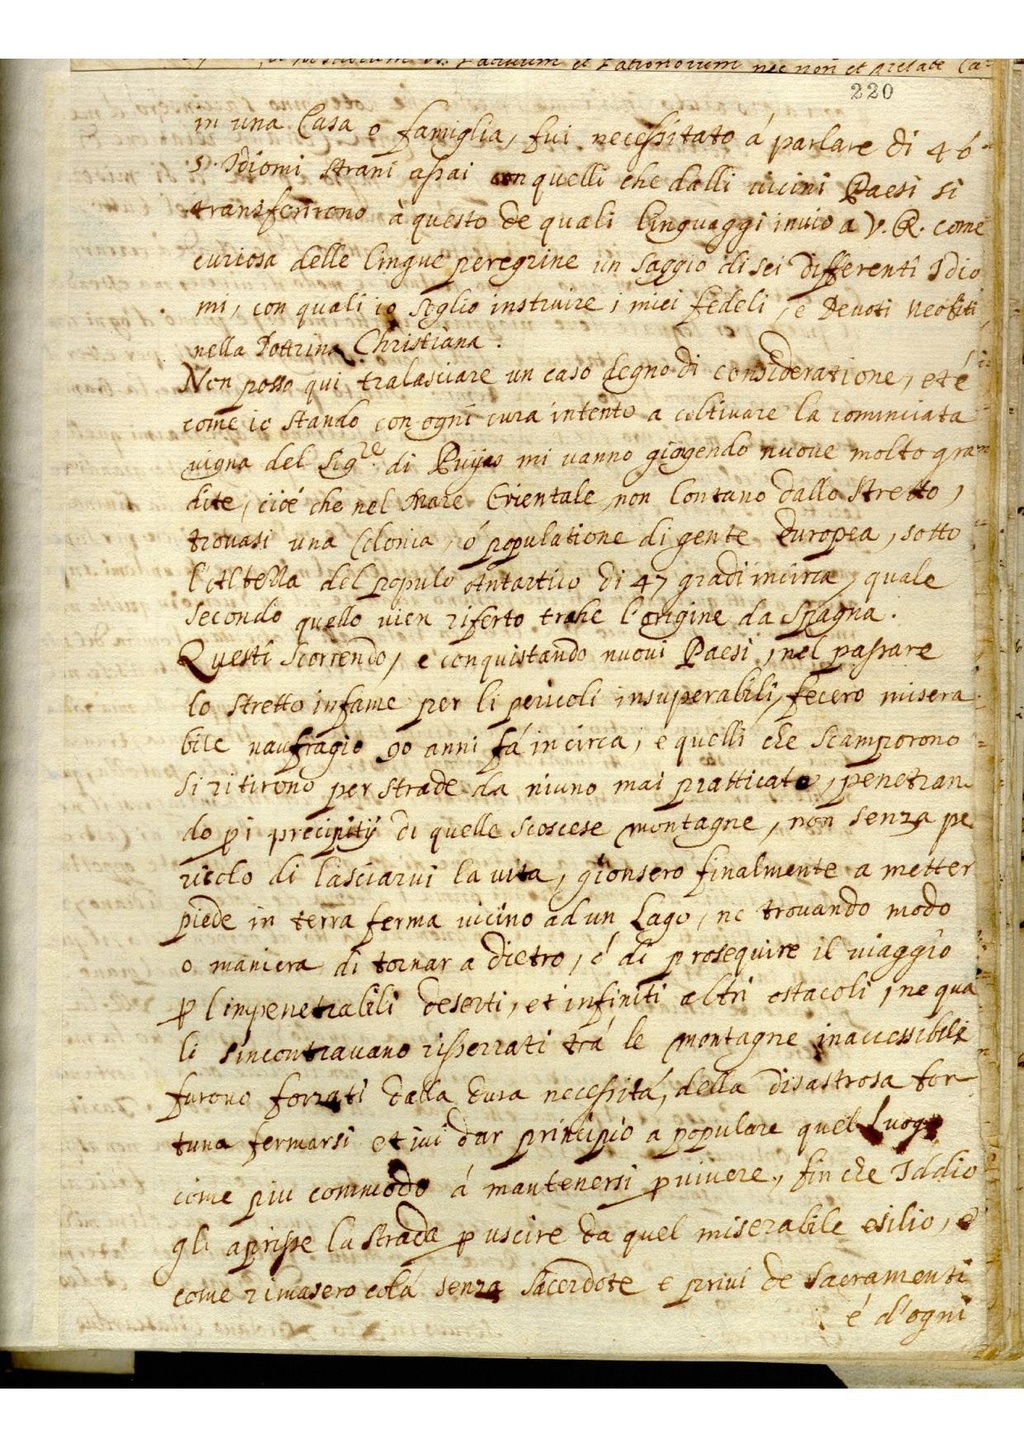 et Rationorum nec non et
220
in una Casa o famiglia, fui necessitato á parlare di 4 ó
5. Idiomi strani assai con quelli che dalli vicini Paesi si
transferirono à questo de quali linguaggi invio a V.R. come
curiosa delle lingue peregrine un saggio di sei differenti Idio
mi, con quali io soglio instruire, i miei fedeli, e Devoti Neofiti,
nella Dottrina Christiana.
Non posso qui tralasciare un caso degno di consideratione, et é
come io stando con ogni cura intento a coltivare la cominciata
vigna del Sig.re di Puijas mi vanno giogendo nuove molto gra
dite, cioé che nel Mare Orientale non lontano dallo stretto,
trovasi una Colonia, ó populatione di gente Europea, sotto
l'Altezza del populo Antartico di 47 gradi incirca, quale
secondo quello vien riferto trahe l'origine da Spagna.
Questi scorrendo, e conquistando nuovi Paesi, nel passare
lo stretto infame per li pericoli insuperabili, fecero misera
bile naufragio 90 anni fá incirca, e quelli che scamporono
si ritirono per strade da niuno mai pratticate, penetran
do p i precipitÿ di quelle scoscese montagne, non senza pe
ricolo di lasciarvi la vita, gionsero finalmente a metter
piede in terra ferma vicino ad un Lago, ne trovando modo
o maniera di tornar a dietro, é di prosequire il viaggio
p l'impenetrabili deserti, et infiniti altri ostacoli, ne qua
li s'incontravano risserrati trá le montagne inaccessibili
furono forzati dalla dura necessitá, della disastrosa for
tuna fermarsi et ivi dar principio a populare quel luogo
come piu commodo á mantenersi p vivere, fin che Iddio
gli aprisse la strada p uscire da quel miserabile esilio, e
come rimasero colá senza Sacerdote e privi de Sacramenti
é d'ogni